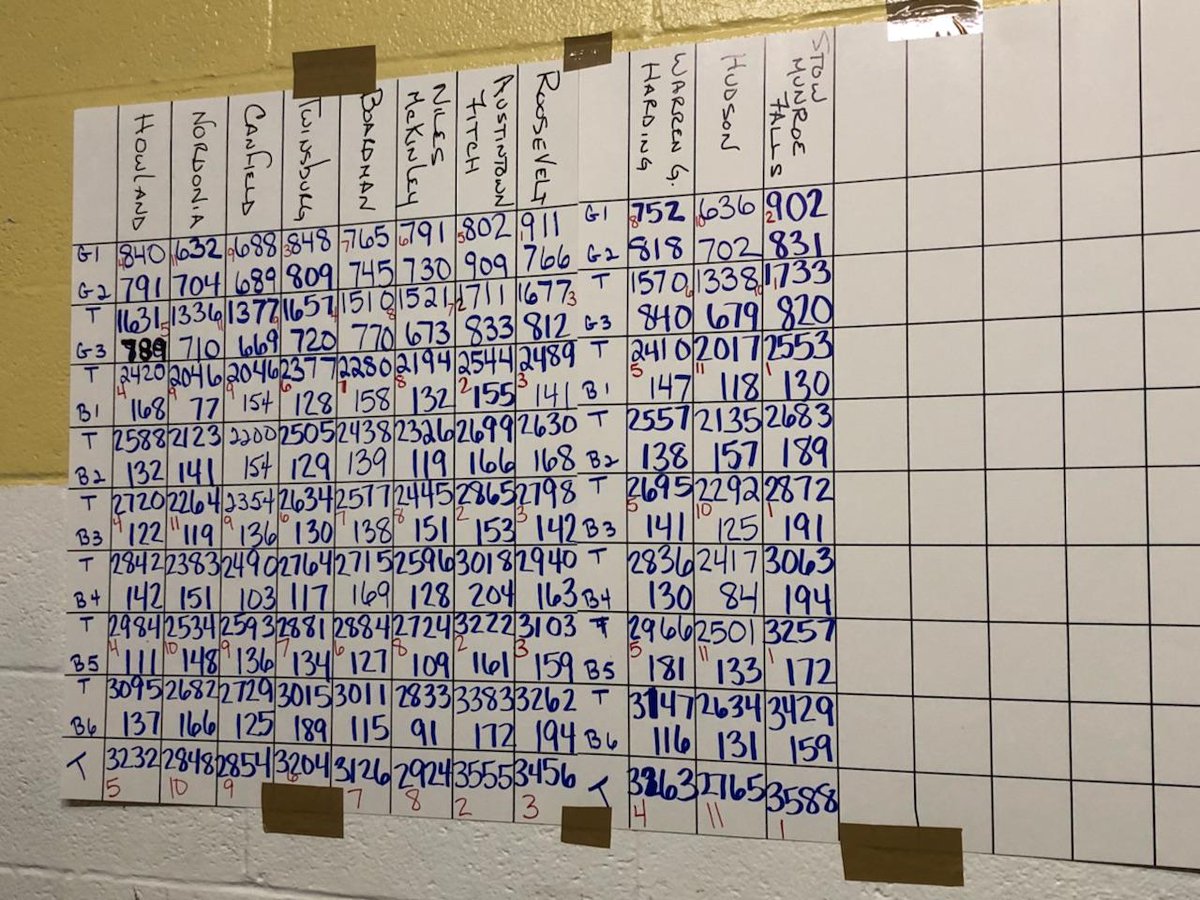 HOWLAND NORDONIA CANFIELD TWINSBURG BOARDMAN NILES McKINLEY AUSTINTOWN FITCH ROOSEVELT WARREN G. HARDING HUDSON STOW MUNROE FALLS
G1 4 840 11 632 9 688 3 848 7 765 6 791 5 802 1 911 G1 8 752 10 636 2 902
G2 791 704 689 809 745 730 909 766 G2 818 702 831
T 1631 5 1336 11 1377 9 1657 4 1510 8 1521 7 1711 2 1677 3 T 1570 6 1338 10 1733 1
G3 789 710 669 720 770 673 833 812 G3 840 679 820
T 2420 2046 2046 2377 2280 2194 2544 2489 T 2410 2017 2553
4 9 9 6 7 8 2 3 5 11 1
B1 168 77 154 128 158 132 155 141 B1 147 118 130
T 2588 2123 2200 2505 2438 2326 2699 2630 T 2557 2135 2683
B2 132 141 154 129 139 119 166 168 B2 138 157 189
T 2720 2264 2354 2634 2577 2445 2865 2798 T 2695 2292 2872
4 11 9 6 7 8 2 3 5 10 1
B3 122 119 136 130 138 151 153 142 B3 141 125 191
T 2842 2383 2490 2764 2715 2596 3018 2940 T 2836 2417 3063
B4 142 151 103 117 169 128 204 163 B4 130 84 194
T 2984 2534 2593 2881 2884 2724 3222 3103 T 2966 2501 3257
4 10 9 7 6 8 2 3 5 11 1
B5 111 148 136 134 127 109 161 159 B5 181 133 172
T 3095 2682 2729 3015 3011 2833 3383 3262 T 3147 2634 3429
B6 137 166 125 189 115 91 172 194 B6 116 131 159
T 3232 2848 2854 3204 3126 2924 3555 3456 T 3263 2765 3588
5 10 9 6 7 8 2 3 4 11 1